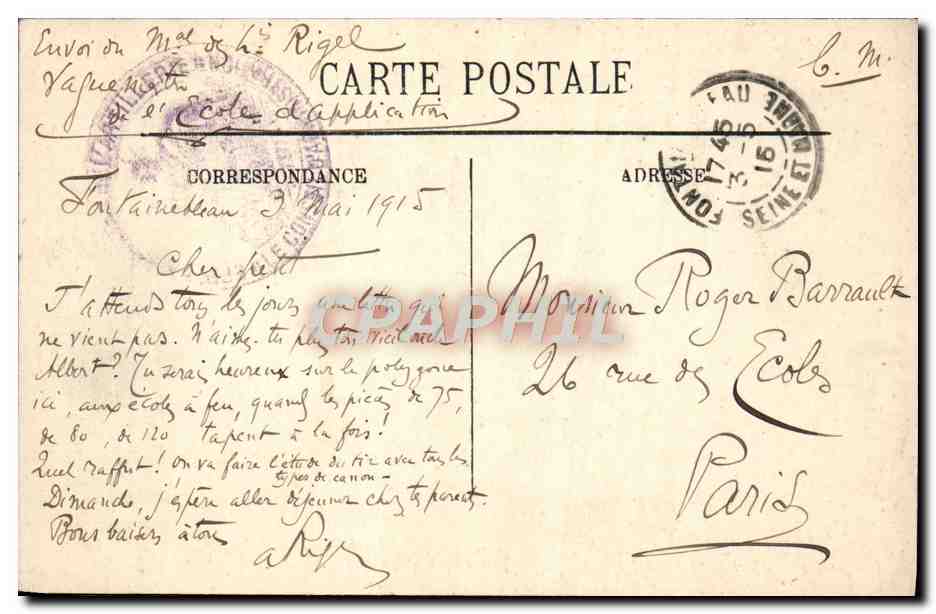 Envoi du Mal des Lis Rigel
C. M.
Vaguemestre
CARTE POSTALE
de l'Ecole d'application
FONTAINEBLEAU
SEINE ET MARNE
17 45
3 -5
15
CORRESPONDANCE
ADRESSE
Fontainebleau 3 Mai 1915
Cher petit
J'attends tous les jours une lettre qui
ne vient pas. N'aimes-tu plus ton vieil oncle
Albert? Tu serais heureux sur le polygone
ici, aux écoles à feu, quand les pièces de 75,
de 80, de 120 tapent à la fois!
Quel raffut! on va faire l'étude du tir avec tous les
types de canon -
Dimanche, j'espère aller déjeuner chez tes parents.
Bons baisers à tous
a Rigel
Monsieur Roger Barrault
26 rue des Ecoles
Paris
CPAPHIL